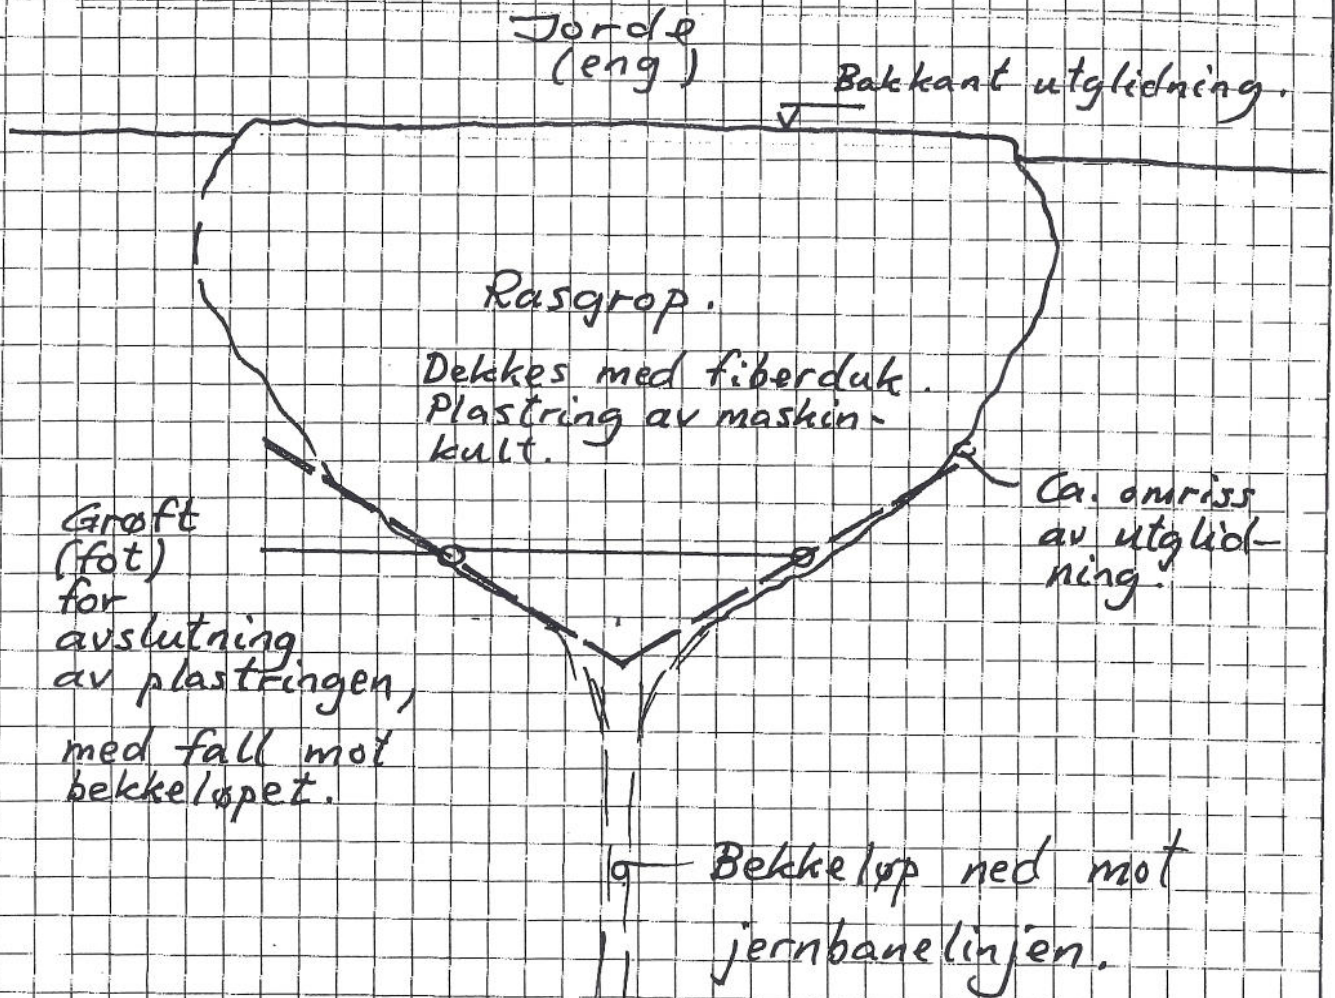 Jorde
(eng)
Bakkant utglidning.
Rasgrop.
Dekkes med fiberduk.
Plastring av maskin-
kult.
Ca. omriss
av utglid-
ning.
Grøft
(fot)
for
avslutning
av plastringen,
med fall mot
bekkeløpet.
Bekkeløp ned mot
jernbanelinjen.